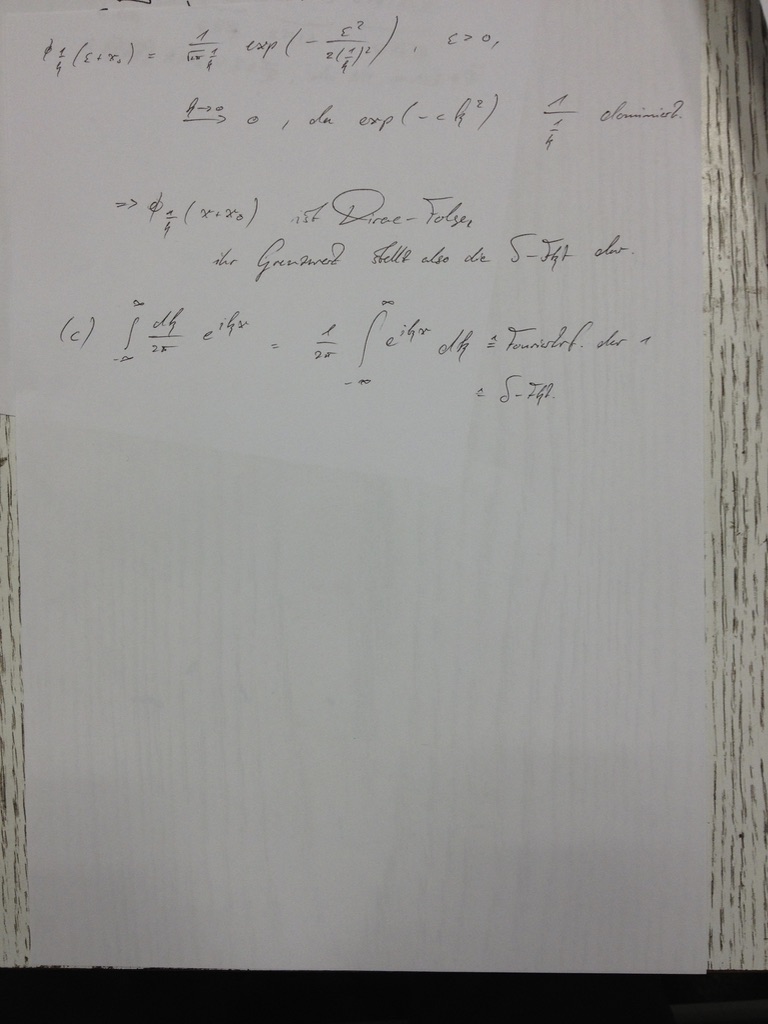 ϕ_{1/k}(ε+x₀) = \frac{1}{\sqrt{2π} \frac{1}{k}} exp(-\frac{ε²}{2(\frac{1}{k})²}), ε>0,
\xrightarrow{k→∞} 0, da exp(-ck²) \frac{1}{\frac{1}{k}} dominiert.
=> ϕ_{1/k}(x+x₀) ist Dirac-Folge,
ihr Grenzwert stellt also die δ-Fkt dar.
(c) ∫_{-∞}^{∞} \frac{dk}{2π} e^{ikx} = \frac{1}{2π} ∫_{-∞}^{∞} e^{ikx} dk ≙ Fouriertrf. der 1
≙ δ-Fkt.